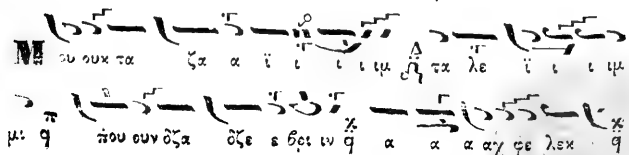 Μ ου ουκ τα ζα α ϊ ι ι ιμ Δ τα λε ϊ ι ι ιμ
μι q π που ουν δζα δζε ε βρι ιν q χ α α α αχ φε λεκ χ q